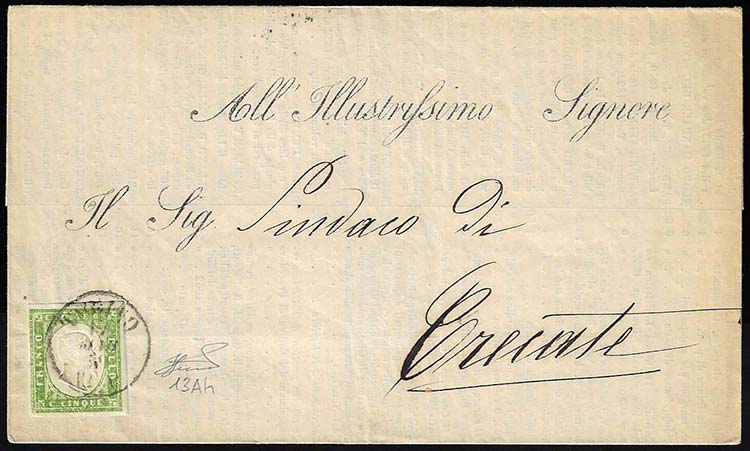 All' Illustrissimo Signore
Il Sig. Sindaco di
Trecate
TORINO
FRANCO
BOLLO
C. CINQUE
13Ah